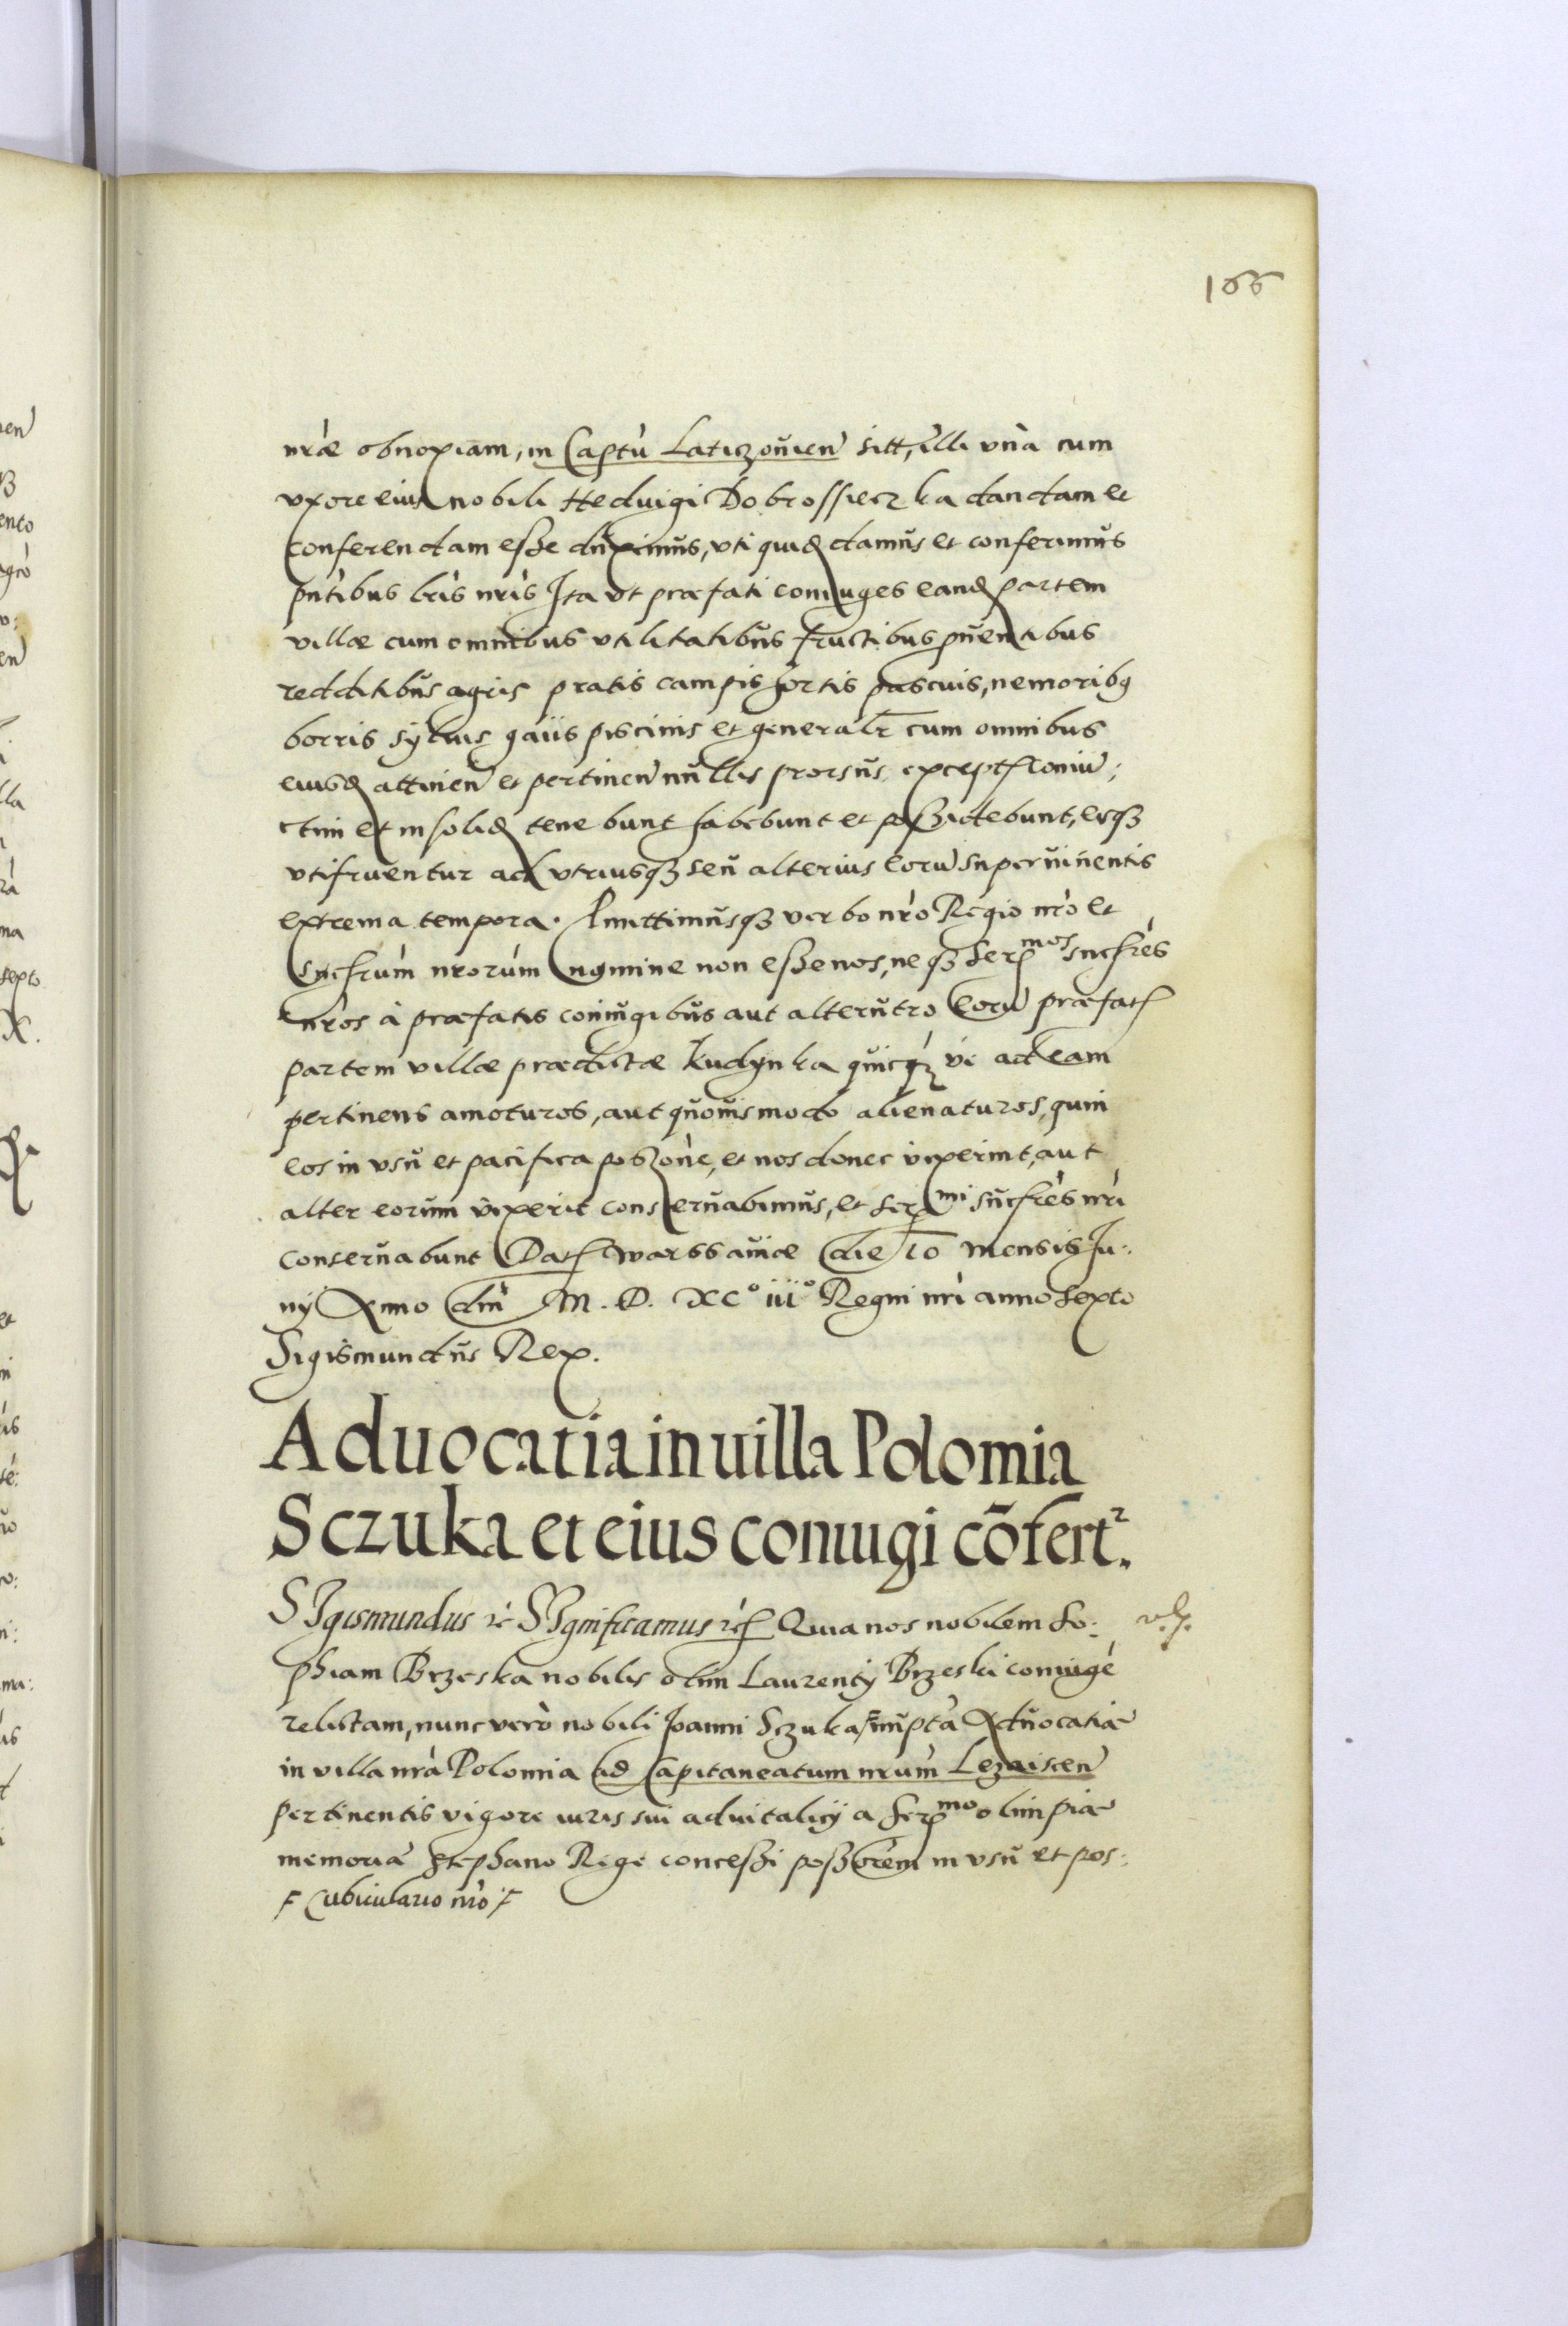 166
nræ obnoxiam, in Captu Laticzouien sitt, illi vna cum
vxore eius nobili Heduigi Dobrossieczka dandam et
conferendam esse duximus, vti quid damus et conferimus
pntibus lris nris Ita vt præfati coniuges eand partem
villæ cum omnibus vtilitatibus fructibus puentibus
redditibus agris pratis campis hortis pascuis, nemoribq
borris syluis gaiis piscinis et generalr cum omnibus
eiusd attinen et pertinen nullis prorsus except coniu:
ctim et in solid tenebunt habebunt et possidebunt, eisqz
vtifruentur ad vtriusqz seu alterius eoru superuiuentis
extrema tempora. Pmittimusqz verbo nro Regio nro et
Sucsrum nrorum nomine non esse nos, neqz Ser mos sucsres
nros à præfatis coniugibus aut alterutro eoru præfat
partem villæ prædictæ Kudynka quicqz ve ad eam
pertinens amoturos, aut quouismodo alienaturos, quin
eos in vsu et pacifica possone, et nos donec vixerint, aut
alter eorum vixerit conseruabimus, et Ser mi sucsres nri
conseruabunt Dat Warssauiæ die 10 mensis Ju:
nij Anno dni M. D. XC° iii° Regni nri anno sexto
Sigismundus Rex.
Aduocatia in uilla Polomia
Sczuka et eius coniugi cōfert.
SIgismundus etc SIgnificamus etc Quia nos nobilem So:
phiam Brzeska nobilis olim Laurentij Brzeski coniugé
relictam, nunc vero nobili Joanni Sczuka F nupta Aduocatiæ
in villa nra Polomia ad Capitaneatum nrum Lezaiscen
pertinentis vigore iuris sui aduitalicij a Ser mo olim piæ
memoriæ Stephano Rege concessi possorem in vsu et pos:
F Cubiculario nro F